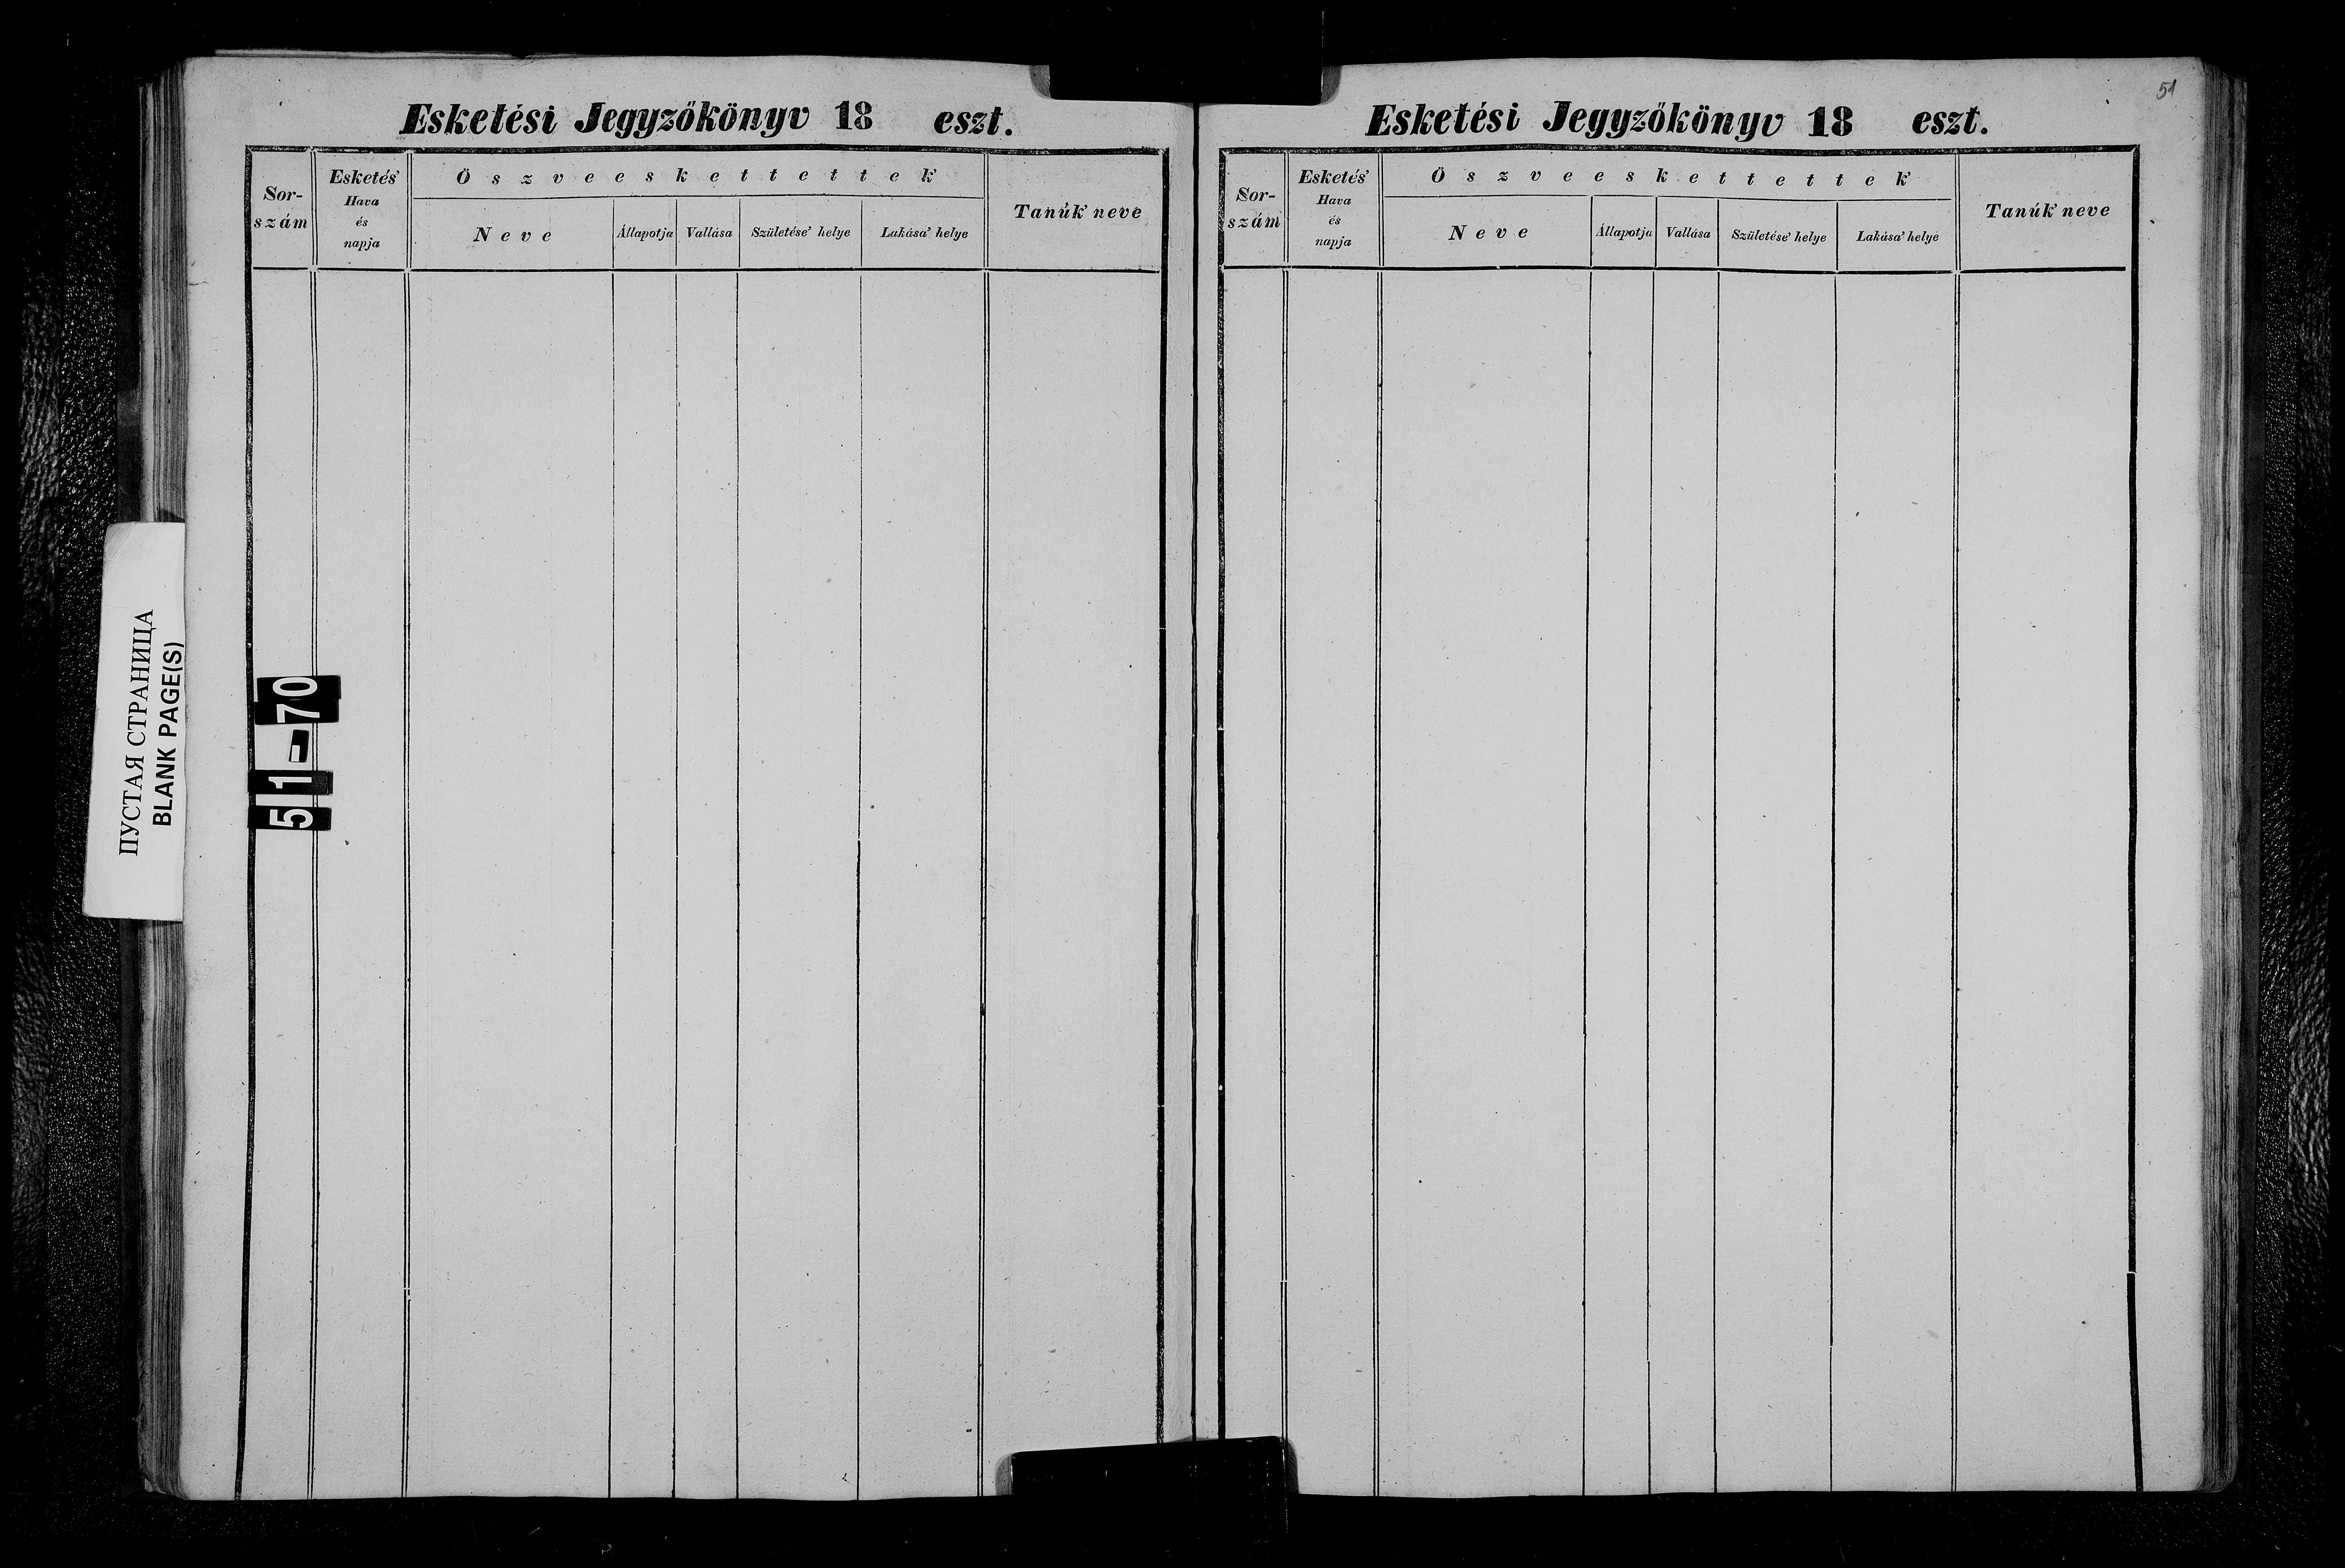 Esketési Jegyzőkönyv 18 eszt.
Sor-
szám
Esketés'
Hava
és
napja
Öszveeskettettek'
Neve
Állapotja
Vallása
Születése' helye
Lakása' helye
Tanúk' neve
ПУСТАЯ СТРАНИЦА
BLANK PAGE(S)
51-70
51
Esketési Jegyzőkönyv 18 eszt.
Sor-
szám
Esketés'
Hava
és
napja
Öszveeskettettek'
Neve
Állapotja
Vallása
Születése' helye
Lakása' helye
Tanúk' neve